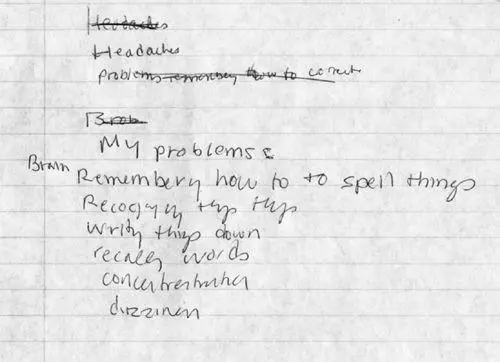 Headaches
Headaches
problems remembery how to correct
Brob
My problems:
Brain
Remembery how to to spell things
thgs thgs
writy thigs down
recalley words
concentrestration
dizzinen